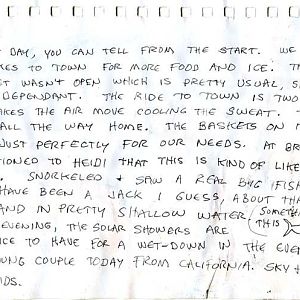 T DAY, YOU CAN TELL FROM THE START. WE
KES TO TOWN FOR MORE FOOD AND ICE. TH
ET WASN'T OPEN WHICH IS PRETTY USUAL, S
DEPENDANT. THE RIDE TO TOWN IS TWO
AKES THE AIR MOVE COOLING THE SWEAT. T
ALL THE WAY HOME. THE BASKETS ON
JUST PERFECTLY FOR OUR NEEDS. AT BR
TIONED TO HEIDI THAT THIS IS KIND OF LIKE
. SNORKELED & SAW A REAL BIG (FISH
HAVE BEEN A JACK I GUESS, ABOUT THA
AND IN PRETTY SHALLOW WATER. (SOMETH
THIS
EVENING, THE SOLAR SHOWERS ARE
ICE TO HAVE FOR A WET-DOWN IN THE EVE
UNG COUPLE TODAY FROM CALIFORNIA. SKY
IDS.